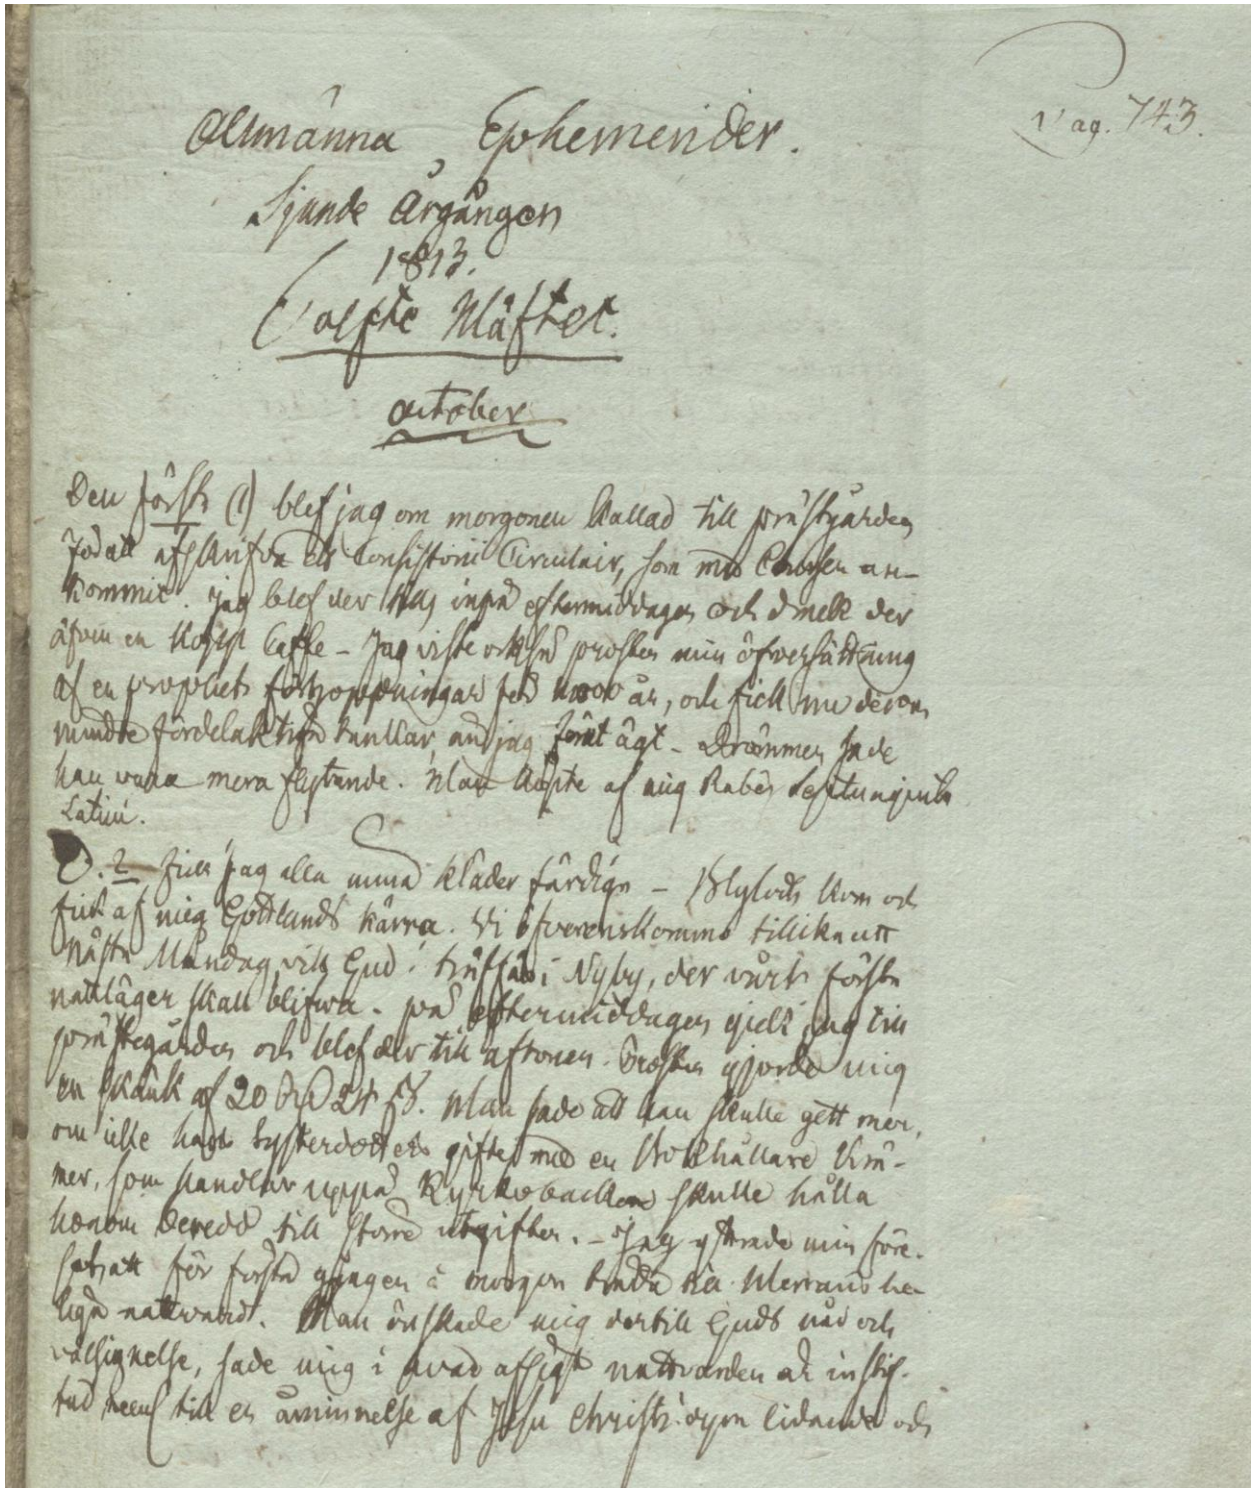 Pag. 743.
Allmänna Ephemerider.
Sjunde Årgången
1813.
Tolfte Häftet.
October
Den första (1) blef jag om morgonen kallad till prästgården
för att afskrifva ett Consistorii Circulair, som med Coursen an-
kommit. Jag blef der tills inpå eftermiddagen och drack der
äfven en kopp Caffe – Jag viste också prosten min öfversättning
af en prophets förhoppningar för 1000 år, och fick nu derom
mindre fördelaktiga tankar, än jag förut ägt – Drömmen sade
han vara mera flytande. Han köpte af mig Rabes
Latin.
D. 2 Fick jag alla mina kläder färdiga – kom och
fick af mig Gottlands kärra. Vi öfverenskommo tillika att
nästa Måndag, vill Gud! träffas i Nyby, der vårt första
nattläger skall blifva. på eftermiddagen gick jag till
prästegården och blef der till aftonen. Prosten gjorde mig
en skänk af 20 24 ß. Man sade att han skulle gett mer,
om icke hans systerdotters gifte med en Bokhållare Krä-
mer, som handlar uppå Kyrkobacken skulle hålla
honom beredd till större utgifter. – Jag yttrade min före-
sats att för första gången i morgon träda till Herrans he-
liga nattvard. Man önskade mig dertill Guds nåd och
välsignelse, sade mig i hvad afsigt nattvarden är instif-
tad neml till en åminnelse af Jesu Christi dyra lidande och